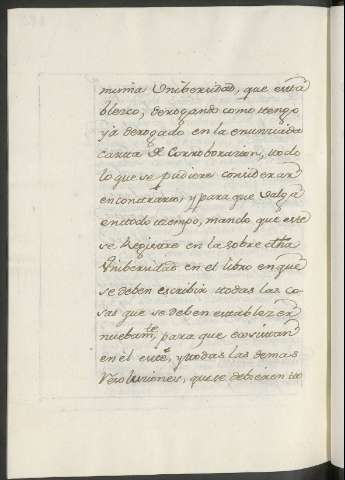 misma Unibersidad, que esta
blezco, derogando como tengo
ya derogado en la enunciada
carta de Corroborazion, todo
lo que se pudiere considerar
en contrario; y para que valga
en todo tiempo, mando que este
se Registre en la sobre dha
Unibersidad en el libro en que
se deben escribir todas las co
sas que se deben establezer
nuebamte, para que exsistan
en el este, y todas las demas
Resoluziones, que se debieren to